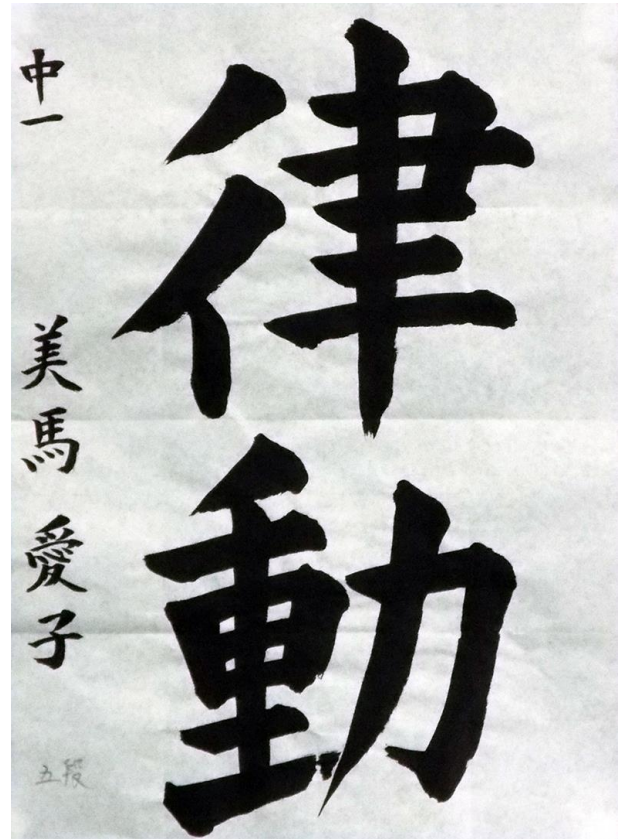 律動
中一 美馬愛子
五段